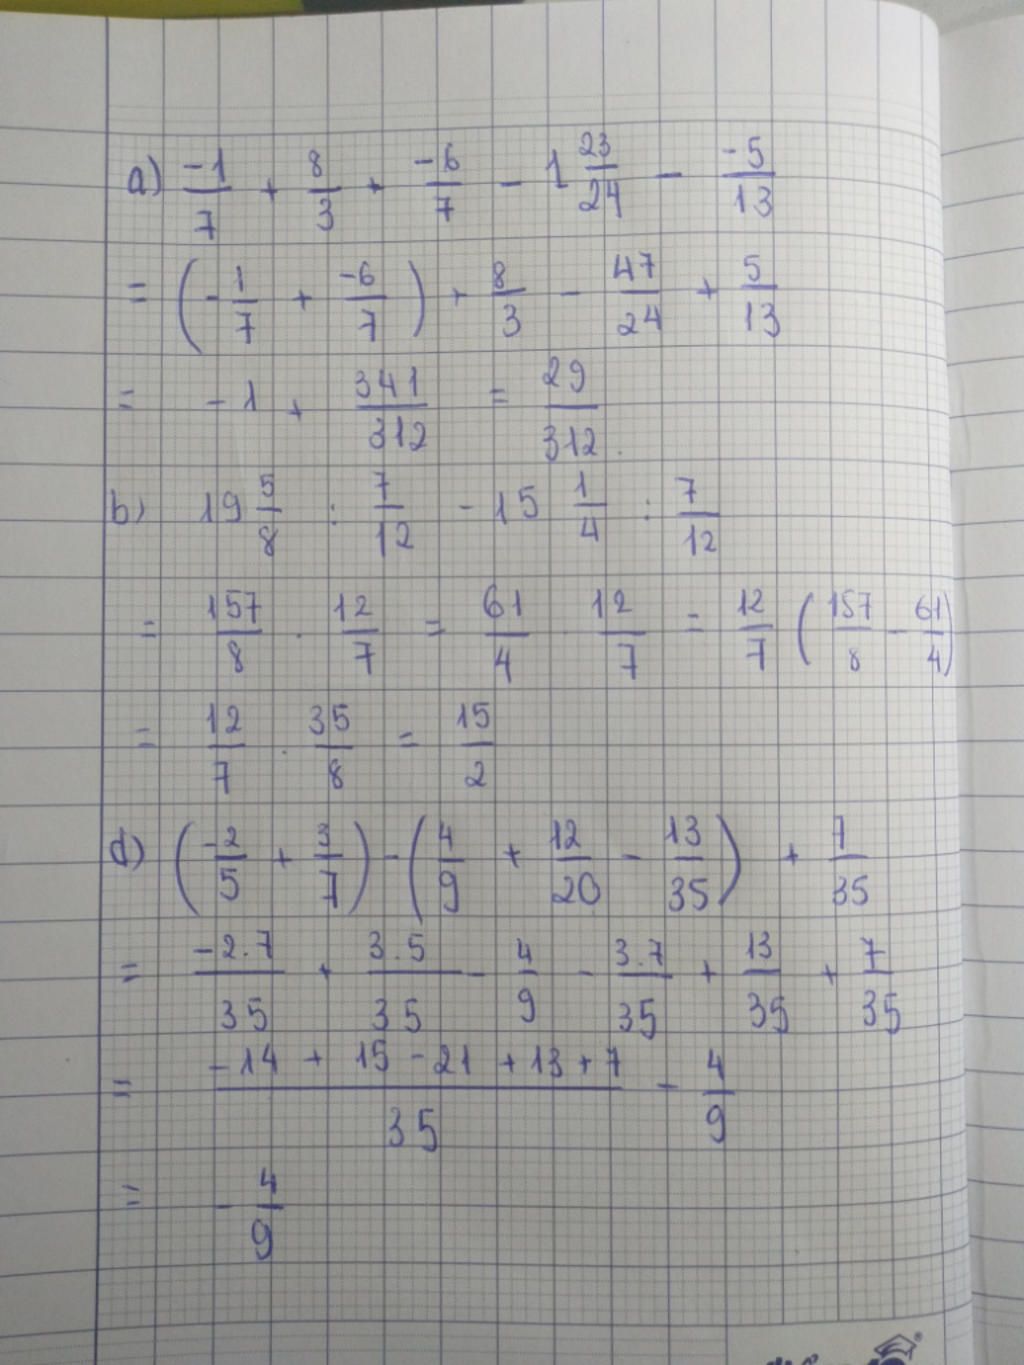 a) -1/7 + 8/3 + -6/7 - 1 23/24 - -5/13
= (-1/7 + -6/7) + 8/3 - 47/24 + 5/13
= -1 + 341/312 = 29/312.
b) 19 5/8 : 7/12 - 15 1/4 : 7/12
= 157/8 . 12/7 = 61/4 . 12/7 = 12/7 (157/8 - 61/4)
= 12/7 . 35/8 = 15/2
d) (-2/5 + 3/7) - (4/9 + 12/20 - 13/35) + 7/35
= -2.7/35 + 3.5/35 - 4/9 - 3.7/35 + 13/35 + 7/35
= -14 + 15 - 21 + 13 + 7/35 - 4/9
= -4/9